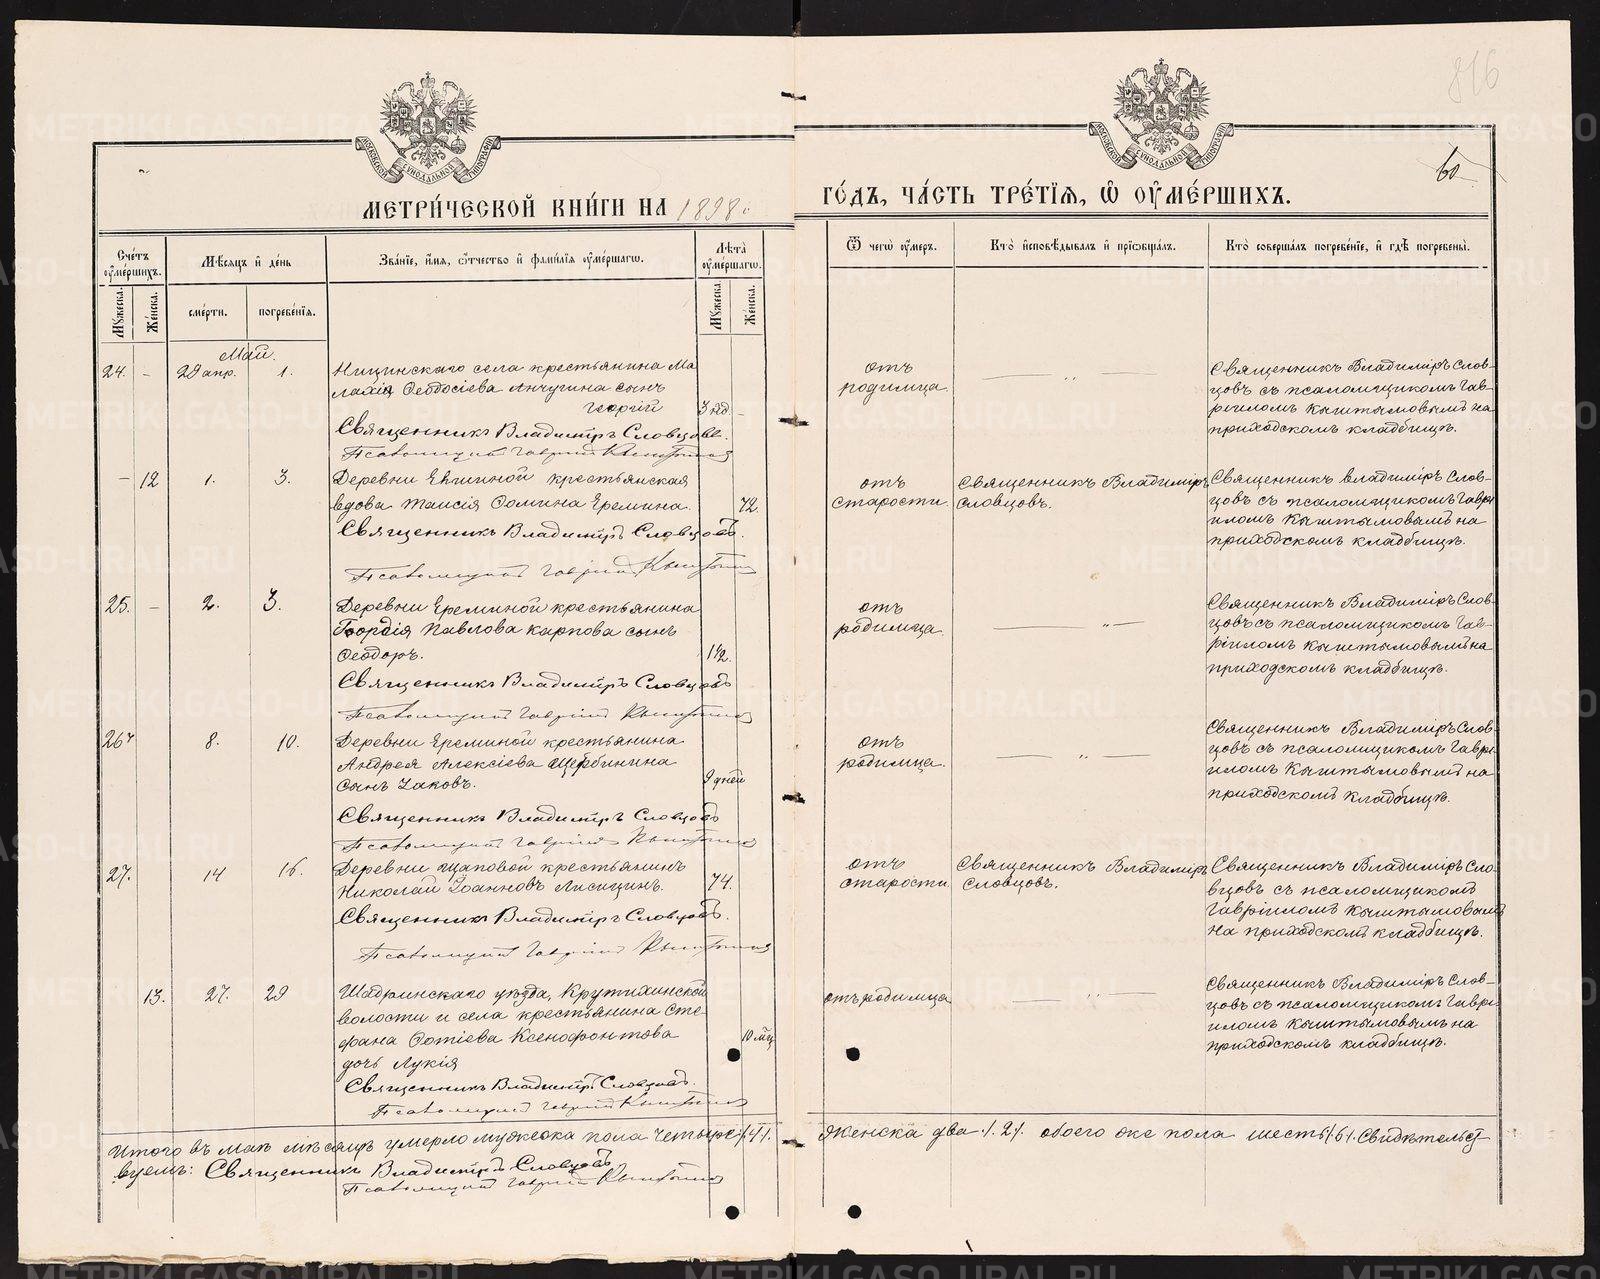 816
60
МЕТРИ́ЧЕСКОЙ КНИ́ГИ НА 1898 г.
ГО́ДЪ, ЧА́СТЬ ТРЕ́ТЇЯ, Ѽ ОУ҆МЕ́РШИХЪ.
МОСКОВСКОЙ СѴНОДАЛЬНОЙ ТИПОГРАФІИ
МОСКОВСКОЙ СѴНОДАЛЬНОЙ ТИПОГРАФІИ
Сче́тъ оу҆ме́ршихъ.
Мꙋ́жеска.
Же́нска.
Мѣ́сяцъ и҆ де́нь
сме́рти.
погребе́нїя.
Зва́нїе, и҆́мя, ѻ҆́тчество и҆ фами́лїя оу҆ме́ршагѡ.
Лѣ́та оу҆ме́ршагѡ.
Мꙋ́жеска.
Же́нска.
Ѿ чегѡ̀ оу҆́меръ.
Кто̀ и҆сповѣ́дывалъ и҆ прїѡбща́лъ.
Кто̀ соверша́лъ погребе́нїе, и҆ гдѣ̀ погребены̀.
Май.
24. - 29 апр. 1.
Ницинскаго села крестьянина Ма
лахія Ѳеодосіева Анчугина сынъ
Георгій
3 нед. -
Священникъ Владиміръ Словцовъ.
Псаломщикъ Гавріилъ Кыштымовъ
отъ
родимца.
— „ —
Священникъ Владиміръ Слов-
цовъ съ псаломщикомъ Гав-
ріиломъ Кыштымовымъ на
приходскомъ кладбищѣ.
- 12 1. 3.
Деревни Еѳиминой крестьянская
вдова Таисія Ѳомина Еремина.
72.
Священникъ Владиміръ Словцовъ.
Псаломщикъ Гавріилъ Кыштымовъ
отъ
старости.
Священникъ Владиміръ
Словцовъ.
Священникъ Владиміръ Слов-
цовъ съ псаломщикомъ Гаврі
иломъ Кыштымовымъ на
приходскомъ кладбищѣ.
25. - 2. 3.
Деревни Ереминой крестьянина
Георгія Павлова Карпова сынъ
Ѳеодоръ.
1½.
Священникъ Владиміръ Словцовъ
Псаломщикъ Гавріилъ Кыштымовъ
отъ
родимца.
— „ —
Священникъ Владиміръ Слов-
цовъ съ псаломщикомъ Гав-
ріиломъ Кыштымовымъ на
приходскомъ кладбищѣ.
26 8. 10.
Деревни Ереминой крестьянина
Андрея Алексіева Щербинина
сынъ Іаковъ.
9 дней
Священникъ Владиміръ Словцовъ
Псаломщикъ Гавріилъ Кыштымовъ
отъ
родимца.
— „ —
Священникъ Владиміръ Слов-
цовъ съ псаломщикомъ Гаврі-
иломъ Кыштымовымъ на
приходскомъ кладбищѣ.
27. 14 16.
Деревни Щаповой крестьянинъ
Николай Іоанновъ Лисицинъ.
74.
Священникъ Владиміръ Словцовъ.
Псаломщикъ Гавріилъ Кыштымовъ
отъ
старости
Священникъ Владиміръ
Словцовъ.
Священникъ Владиміръ Сло-
вцовъ съ псаломщикомъ
Гавріиломъ Кыштымовымъ
на приходскомъ кладбищѣ.
13. 27. 29
Шадринскаго уѣзда, Крутихинской
волости и села крестьянина Сте-
фана Ѳотіева Ксенофонтова
дочь Лукія
10 мѣц
Священникъ Владиміръ Словцовъ.
Псаломщикъ Гавріилъ Кыштымовъ
отъ родимца
— „ —
Священникъ Владиміръ Слов-
цовъ съ псаломщикомъ Гаврі-
иломъ Кыштымовымъ на
приходскомъ кладбищѣ.
Итого въ маѣ мѣсяцѣ умерло мужеска пола четыре /.4/.
Женска два /.2/. обоего же пола шесть /.6/. Свидѣтельст
вуемъ: Священникъ Владиміръ Словцовъ.
Псаломщикъ Гавріилъ Кыштымовъ
METRIKI.GASO-URAL.RU